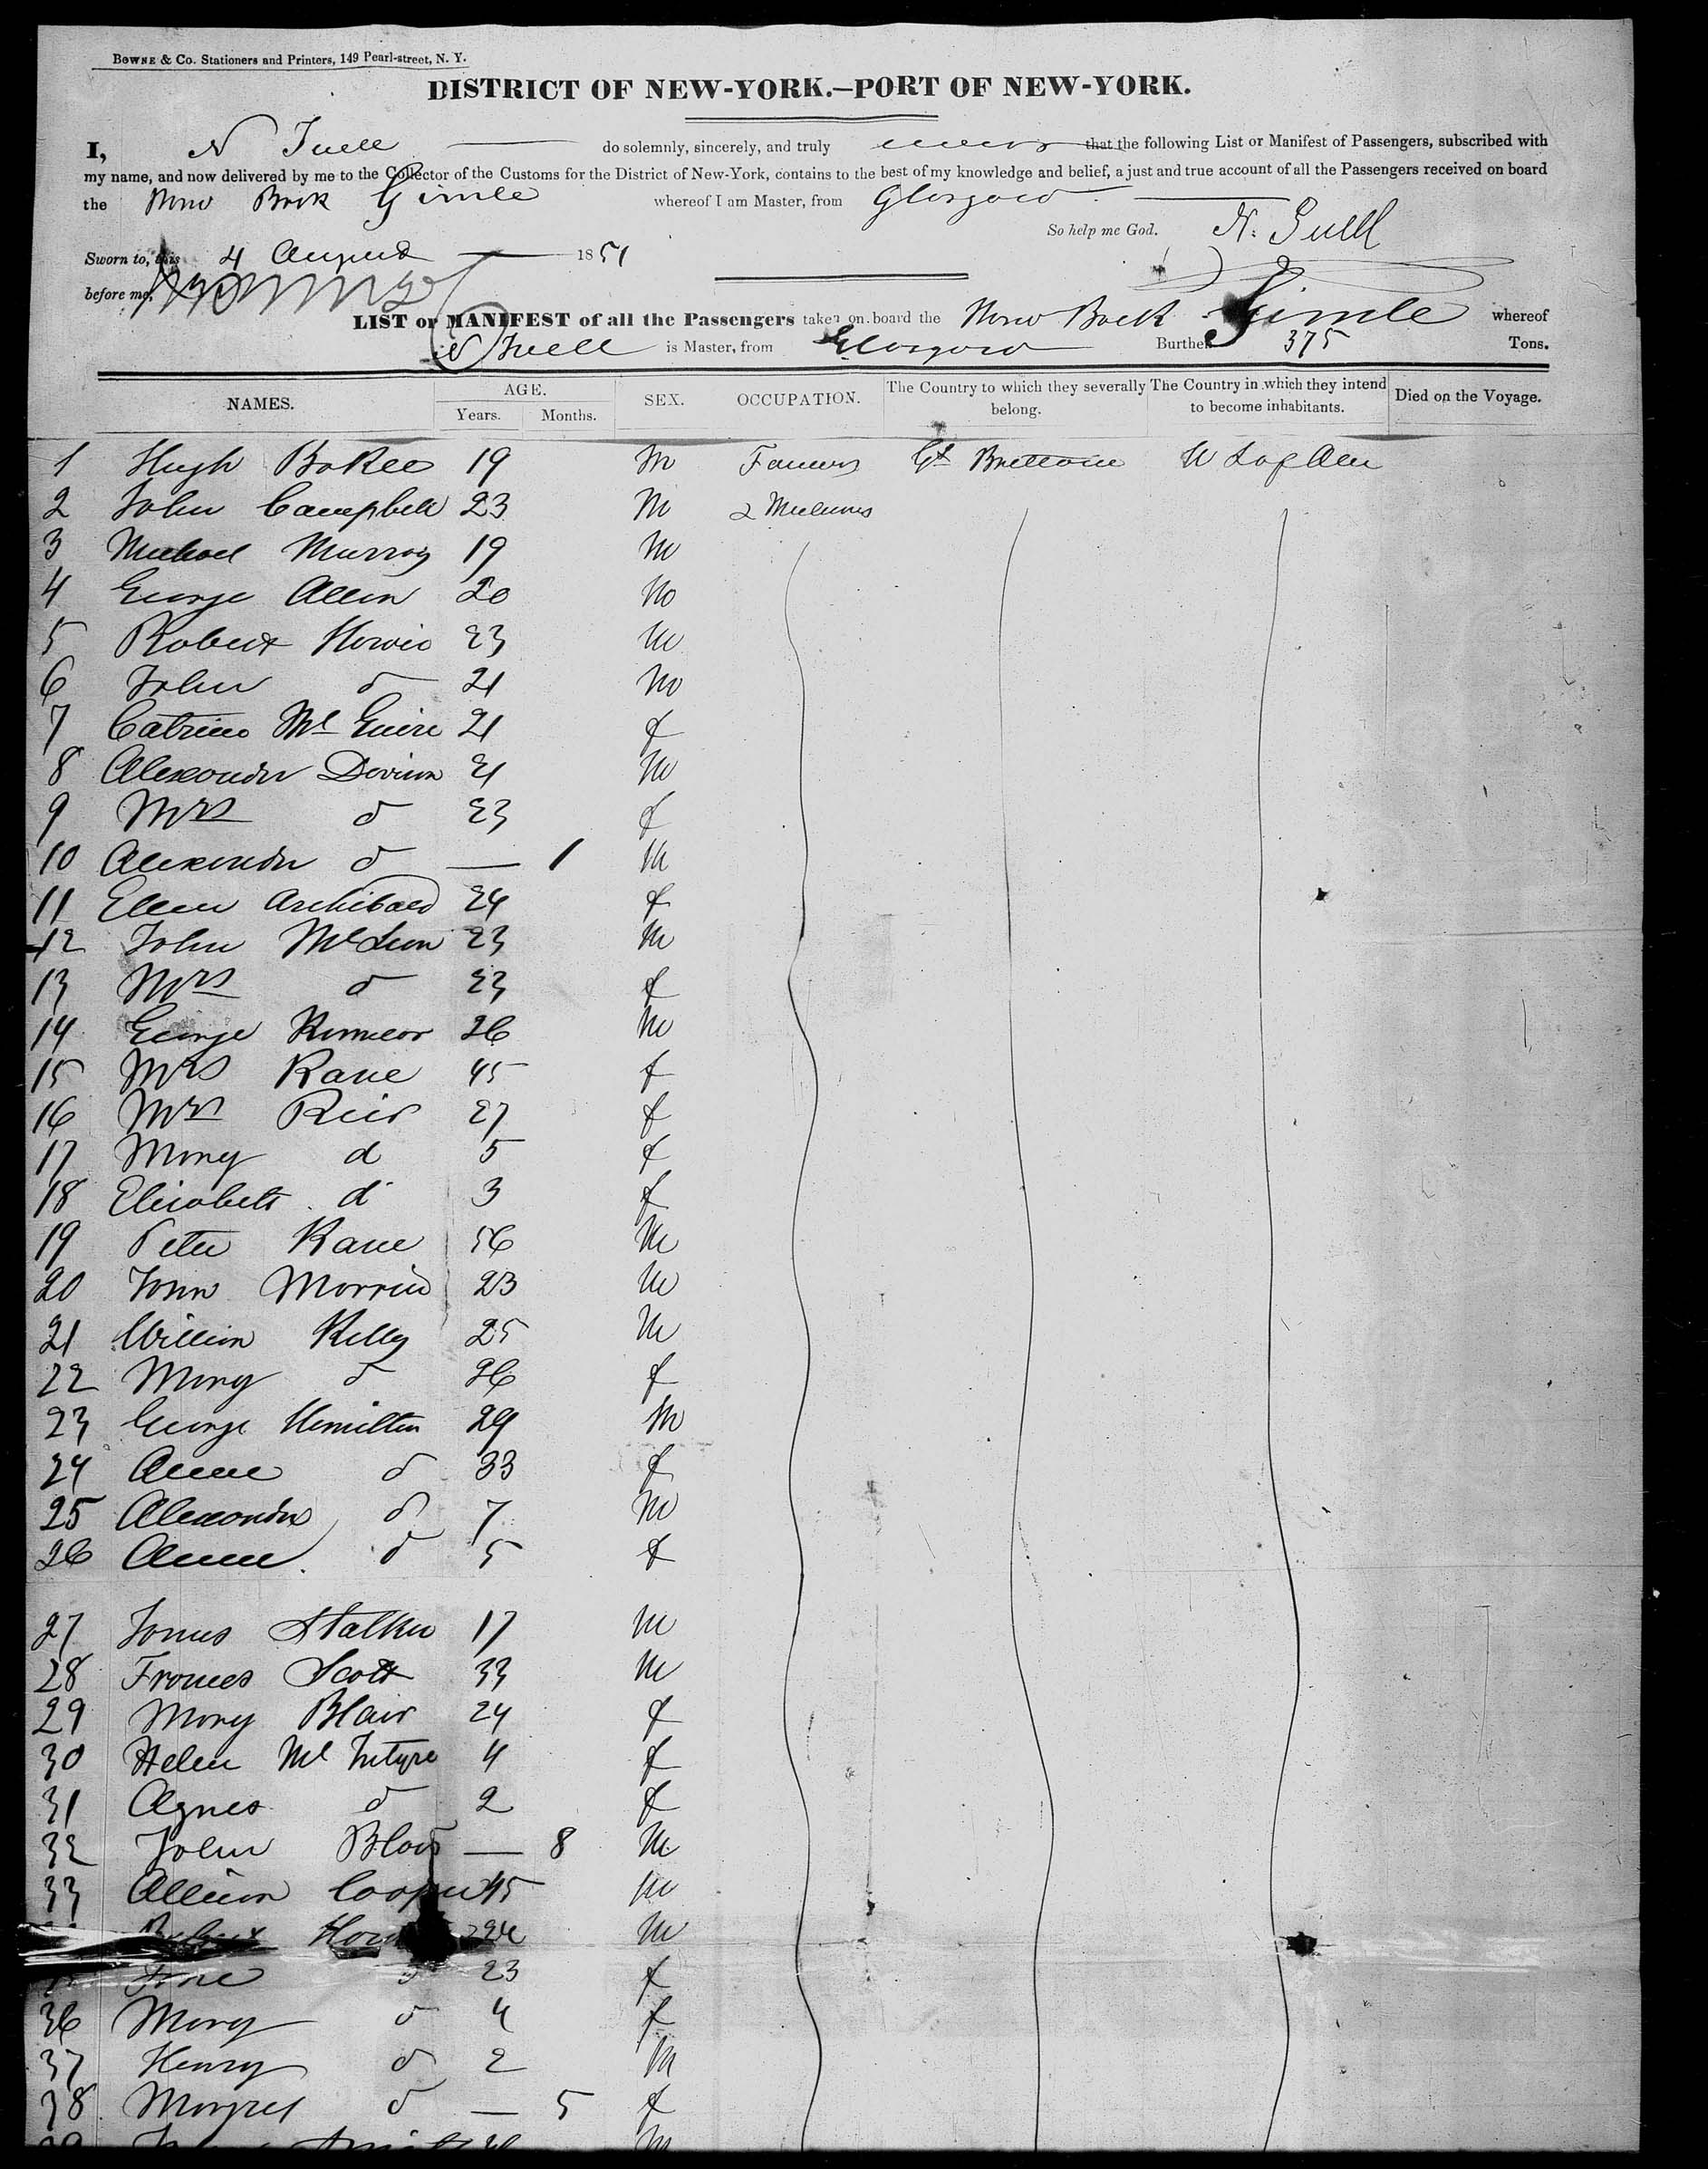 BOWNE & CO. Stationers and Printers, 149 Pearl-street, N. Y.
DISTRICT OF NEW-YORK.—PORT OF NEW-YORK.
I, N Tuell do solemnly, sincerely, and truly that the following List or Manifest of Passengers, subscribed with
my name, and now delivered by me to the Collector of the Customs for the District of New-York, contains to the best of my knowledge and belief, a just and true account of all the Passengers received on board
the Norw Bark Gimle whereof I am Master, from Glasgow
So help me God. N. Tuell
Sworn to, this 4 August 1851
before me,
LIST or MANIFEST of all the Passengers taken on board the Norw Bark Gimle whereof
N Tuell is Master, from Glasgow Burthen 375 Tons.
NAMES. AGE. Years. Months. SEX. OCCUPATION. The Country to which they severally belong. The Country in which they intend to become inhabitants. Died on the Voyage.
1 Hugh 19 M Farmers Gt Brittain U S of Am
2 John Campbell 23 M &
3 Michael Murray 19 M
4 George Allen 20 M
5 Robert Howie 23 M
6 John d 21 M
7 Mc Guire 21 f
8 Alexander 21 M
9 Mrs d 23 f
10 Alexander d — 1 M
11 Ellen Archibald 24 f
12 John 23 M
13 Mrs d 23 f
14 George 26 M
15 Mrs Kane 45 f
16 Mrs 27 f
17 Mary d 5 f
18 Elisabeth d 3 f
19 Peter Kane 56 M
20 John Morris 23 M
21 William Kelly 25 M
22 Mary d 26 f
23 George Hamilton 29 M
24 Anne d 33 f
25 Alexander d 7 M
26 Anne d 5 f
27 James Stalker 17 M
28 Frances Scott 33 M
29 Mary Blair 24 f
30 Helen Mc Intyre 4 f
31 Agnes d 2 f
32 John Blair — 8 M
33 Cooper 45 M
M
Jane d 23 f
36 Mary d 4 f
37 Henry d 2 M
38 Margret d — 5 f
39 M